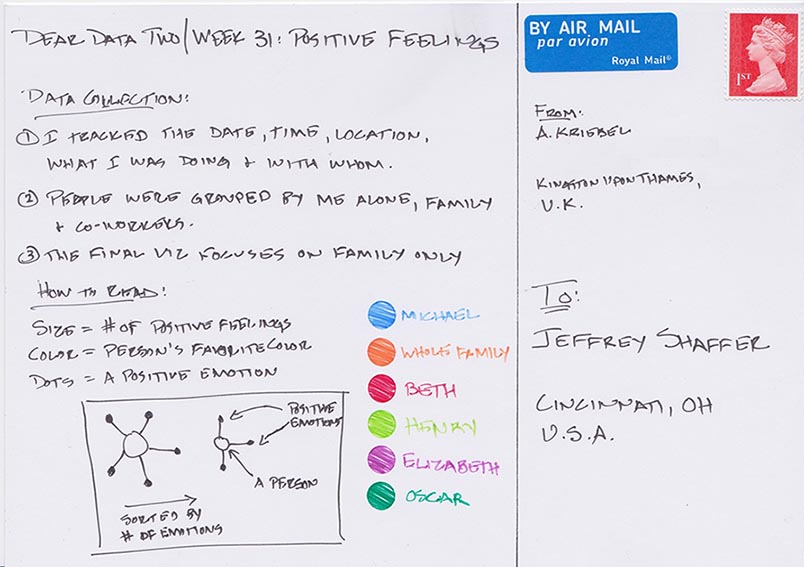 DEAR DATA TWO/WEEK 31: POSITIVE FEELINGS
DATA COLLECTION:
① I TRACKED THE DATE, TIME, LOCATION,
WHAT I WAS DOING + WITH WHOM.
② PEOPLE WERE GROUPED BY ME ALONE, FAMILY
+ CO-WORKERS.
③ THE FINAL VIZ FOCUSES ON FAMILY ONLY
HOW TO READ:
SIZE = # OF POSITIVE FEELINGS
COLOR = PERSON'S FAVORITE COLOR
DOTS = A POSITIVE EMOTION
POSITIVE
EMOTIONS
A PERSON
SORTED BY
# OF EMOTIONS
MICHAEL
WHOLE FAMILY
BETH
HENRY
ELIZABETH
OSCAR
BY AIR MAIL
par avion
Royal Mail®
1ST
FROM:
A. KRIEBEL
KINGSTON UPON THAMES,
U.K.
TO:
JEFFREY SHAFFER
CINCINNATI, OH
U.S.A.